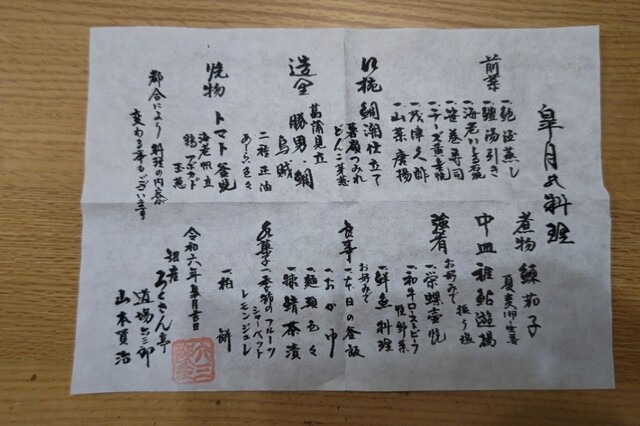 皐月の料理
前菜
一、鮑酒蒸し
一、鱧湯引き
一、海老いしる焼
一、笹巻寿司
一、チーズ黄金焼
一、茂津久酢
一、山菜唐揚
吸椀
鯛潮仕立て
蓬つみれ
どんこ 芽葱
造里
菖蒲見立
勝男、鯛
烏賊
二種正油
あしらい色々
焼物
トマト釜焼
海老 帆立
鶏 アボカド
玉葱
都合により料理の内容が
変わる事もございます
煮物
鰊茄子
夏大根 生姜
中皿
稚鮎遊揚
振り塩
強肴
お好みで
一、栄螺壷焼
一、和牛ローストビーフ
一、鮮魚料理
食事
お好みで
一、本日の釜飯
一、おかゆ
一、麺類色々
一、緑鯖茶漬
水菓子
一、季節のフルーツ
シャーベット
レモンジュレ
一、柏餅
令和六年皐月吉日
銀座
ろくさん亭
道場六三郎
山本貫治